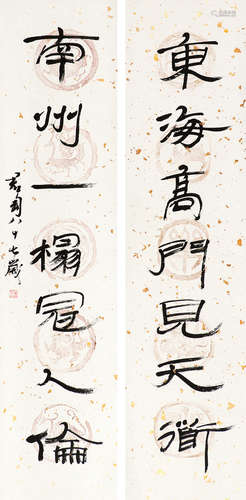 東海高門見天衜
南州一榻冠人倫
君匋八十七歲